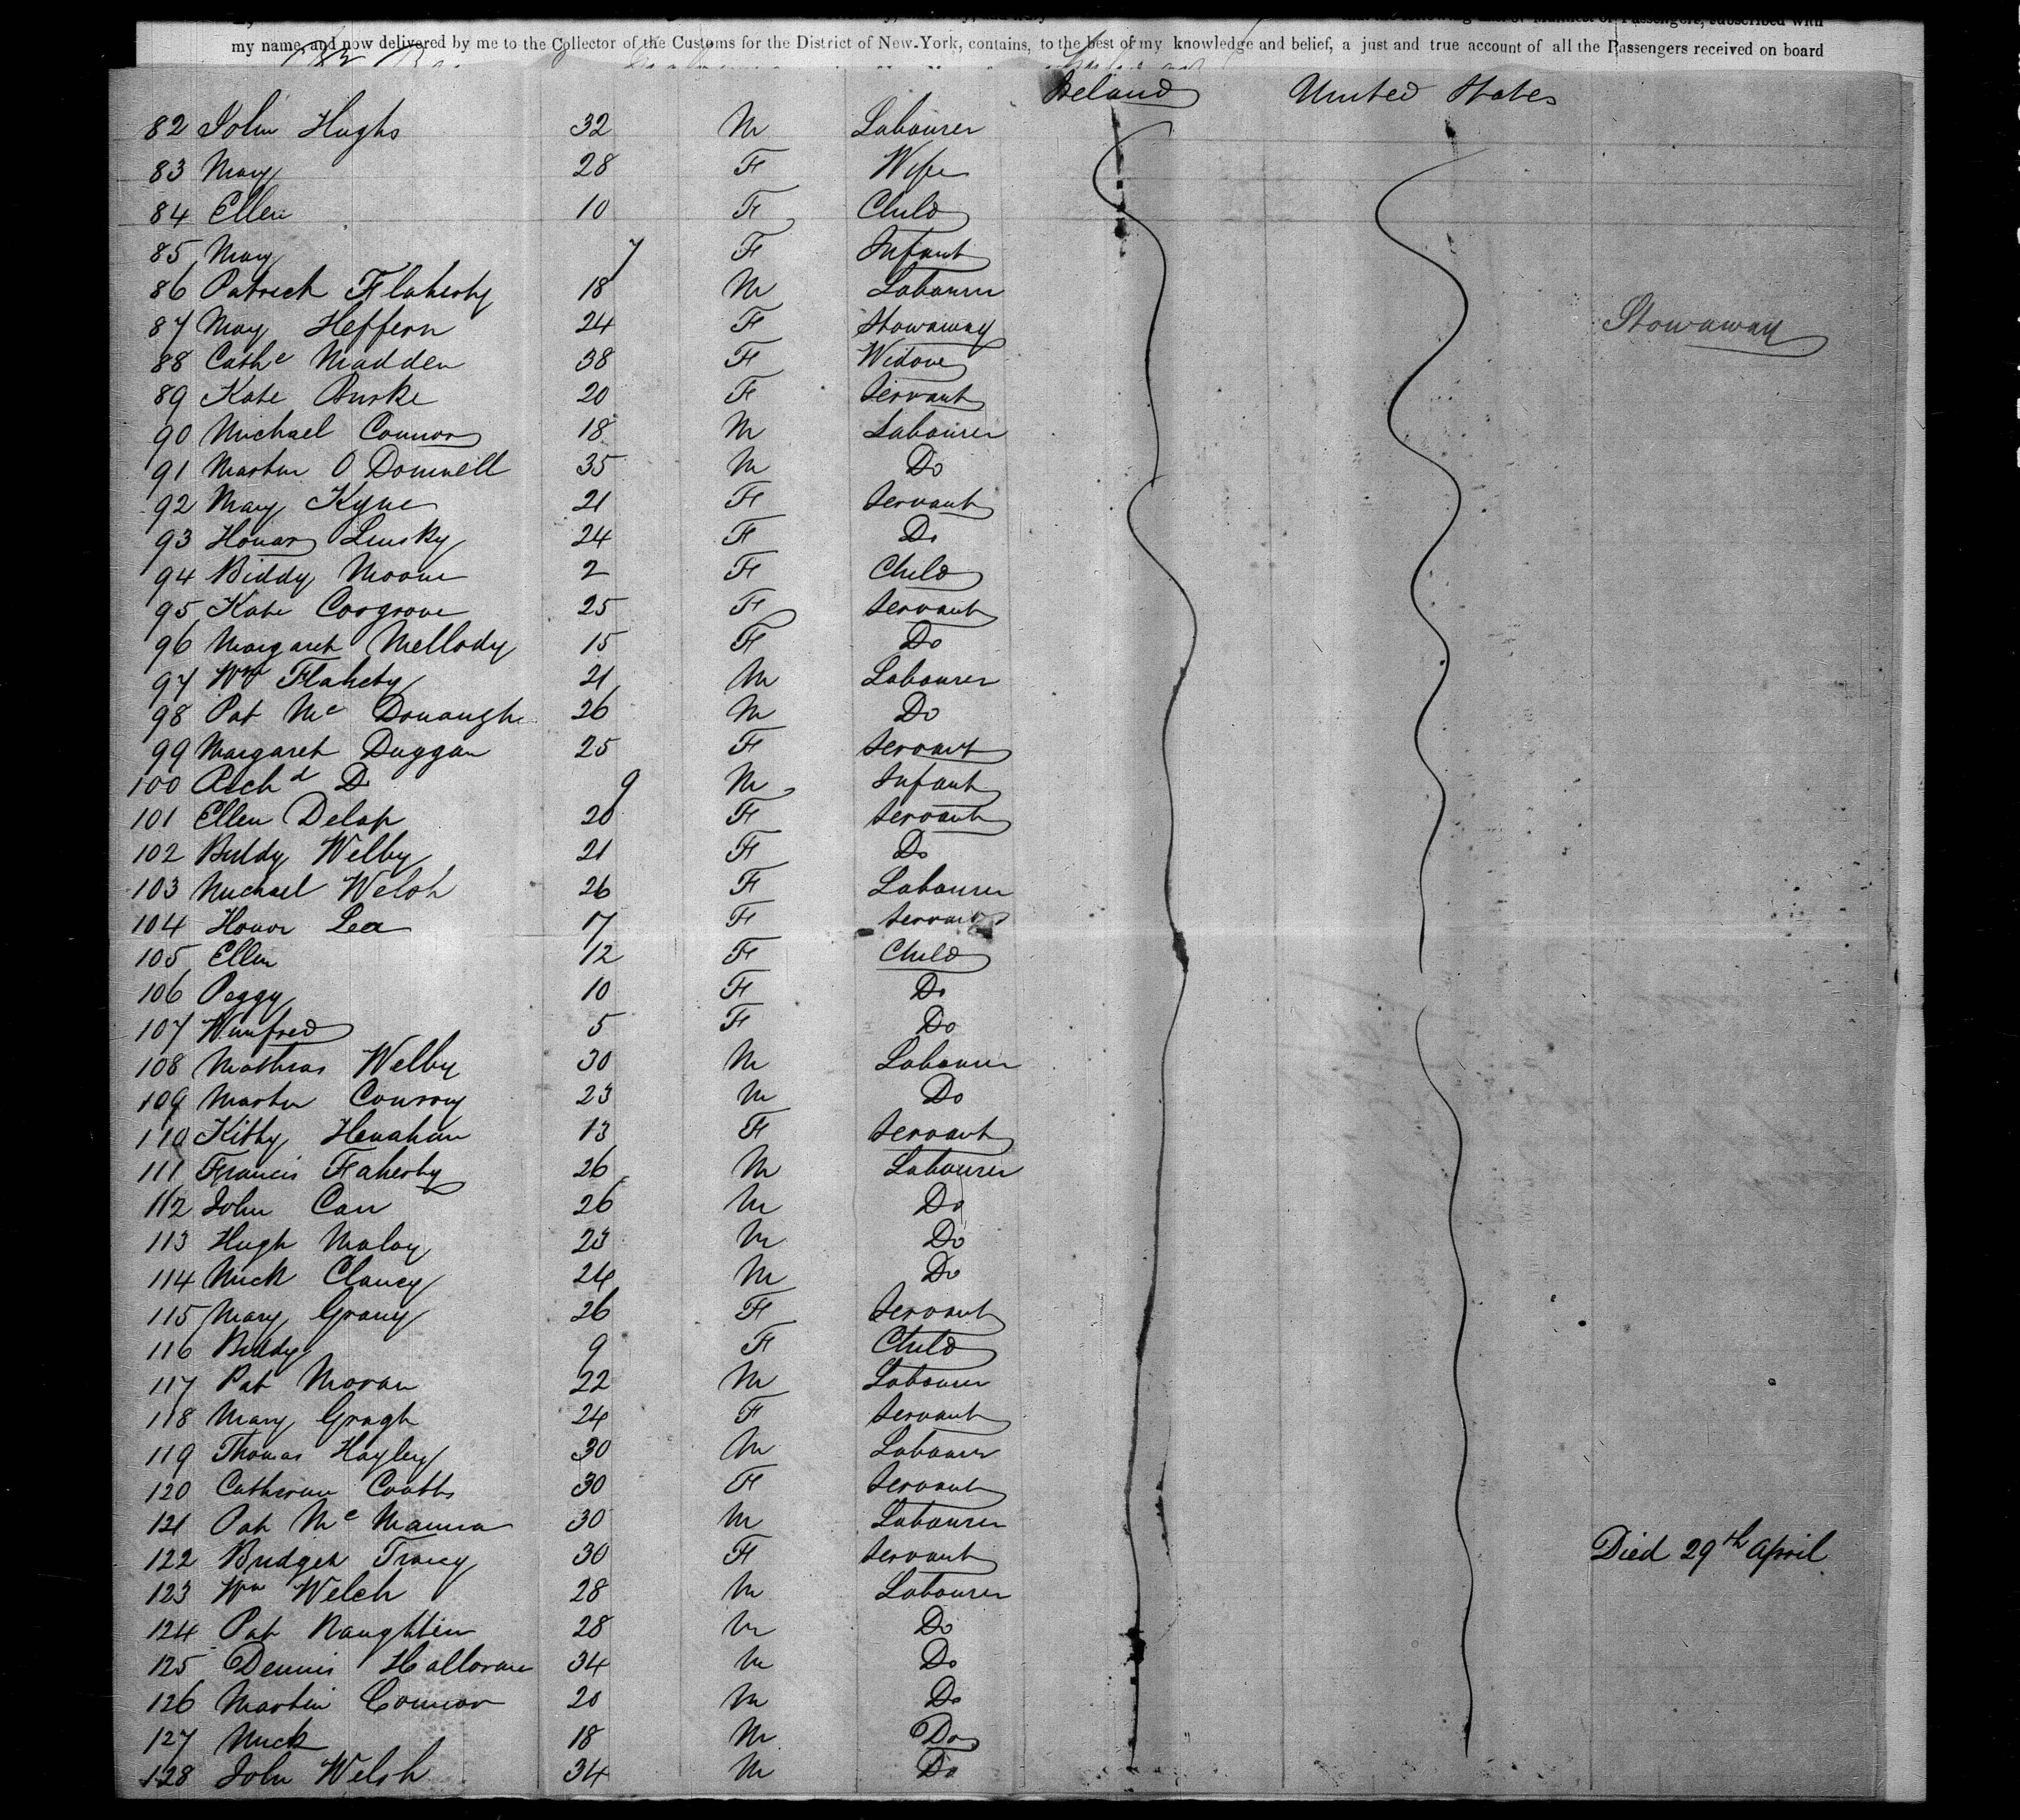 my name, and now delivered by me to the Collector of the Customs for the District of New-York, contains, to the best of my knowledge and belief, a just and true account of all the Passengers received on board
Ireland United States
82 John Hughs 32 M Labourer
83 Mary 28 F Wife
84 Ellen 10 F Child
85 Mary 7 F Infant
86 Patrick Flaherty 18 M Labourer
87 May Heffern 24 F Stowaway Stowaway
88 Cathe Madden 38 F Widow
89 Kate Burke 20 F Servant
90 Michael Connor 18 M Labourer
91 Martin O Donnell 35 M Do
92 Mary Kyne 21 F Servant
93 Honar Linsky 24 F Do
94 Biddy Moore 2 F Child
95 Kate Cosgrove 25 F Servant
96 Margaret Mellody 15 F Do
97 Wm Flahety 21 M Labourer
98 Pat Mc Donaugh 26 M Do
99 Margaret Duggan 25 F Servant
100 Richd D 9 M Infant
101 Ellen Delap 20 F Servant
102 Biddy Welby 21 F Do
103 Michael Welsh 26 F Labourer
104 Honor Lea 17 F Servant
105 Ellen 12 F Child
106 Peggy 10 F Do
107 Winifred 5 F Do
108 Mathias Welby 30 M Labourer
109 Martin Conroy 23 M Do
110 Kitty Henahan 13 F Servant
111 Francis Flaherty 26 M Labourer
112 John Carr 26 M Do
113 Hugh Maloy 23 M Do
114 Mick Clancy 24 M Do
115 Mary Grany 26 F Servant
116 Biddy 9 F Child
117 Pat Moran 22 M Labourer
118 Mary Gragh 24 F Servant
119 Thomas Hayley 30 M Labourer
120 Catherine Coatts 30 F Servant
121 Pat Mc Manna 30 M Labourer
122 Bridget Tracey 30 F Servant Died 29th April
123 Wm Welch 28 M Labourer
124 Pat Naughtin 28 M Do
125 Dennis Halloran 34 M Do
126 Martin Connor 20 M Do
127 Mick 18 M Do
128 John Welsh 34 M Do